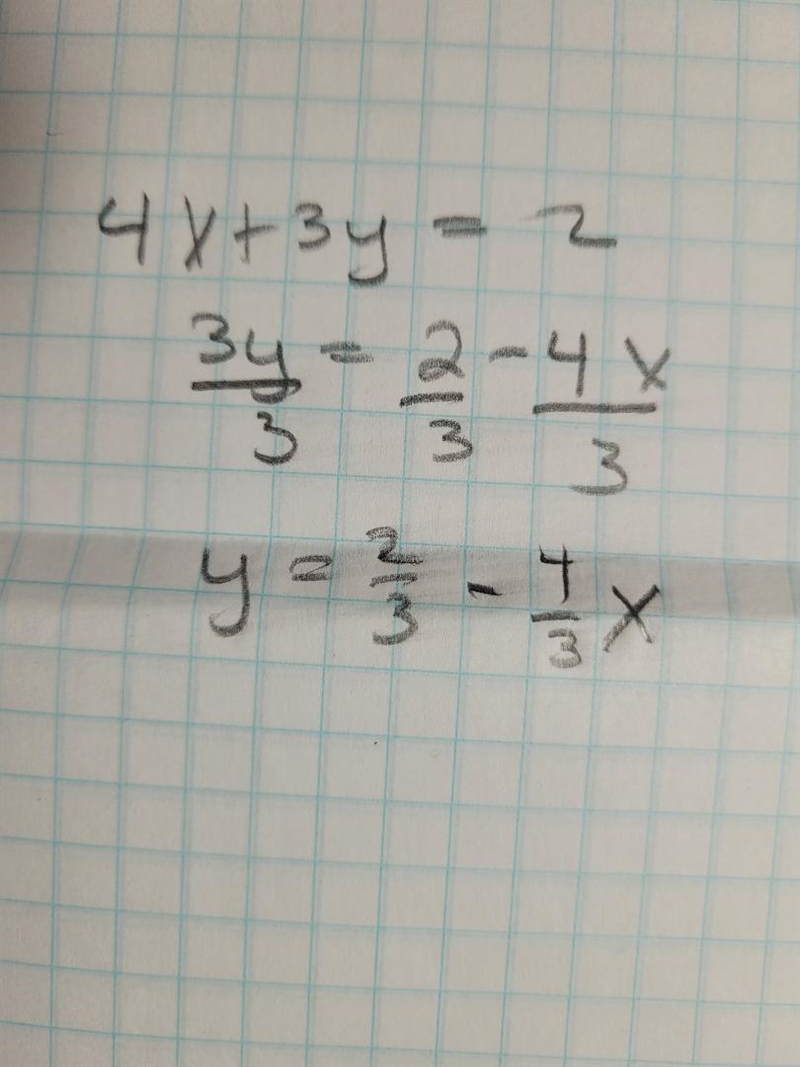 4x+3y = 2
3y/3 = 2/3 - 4x/3
y = 2/3 - 4/3 x